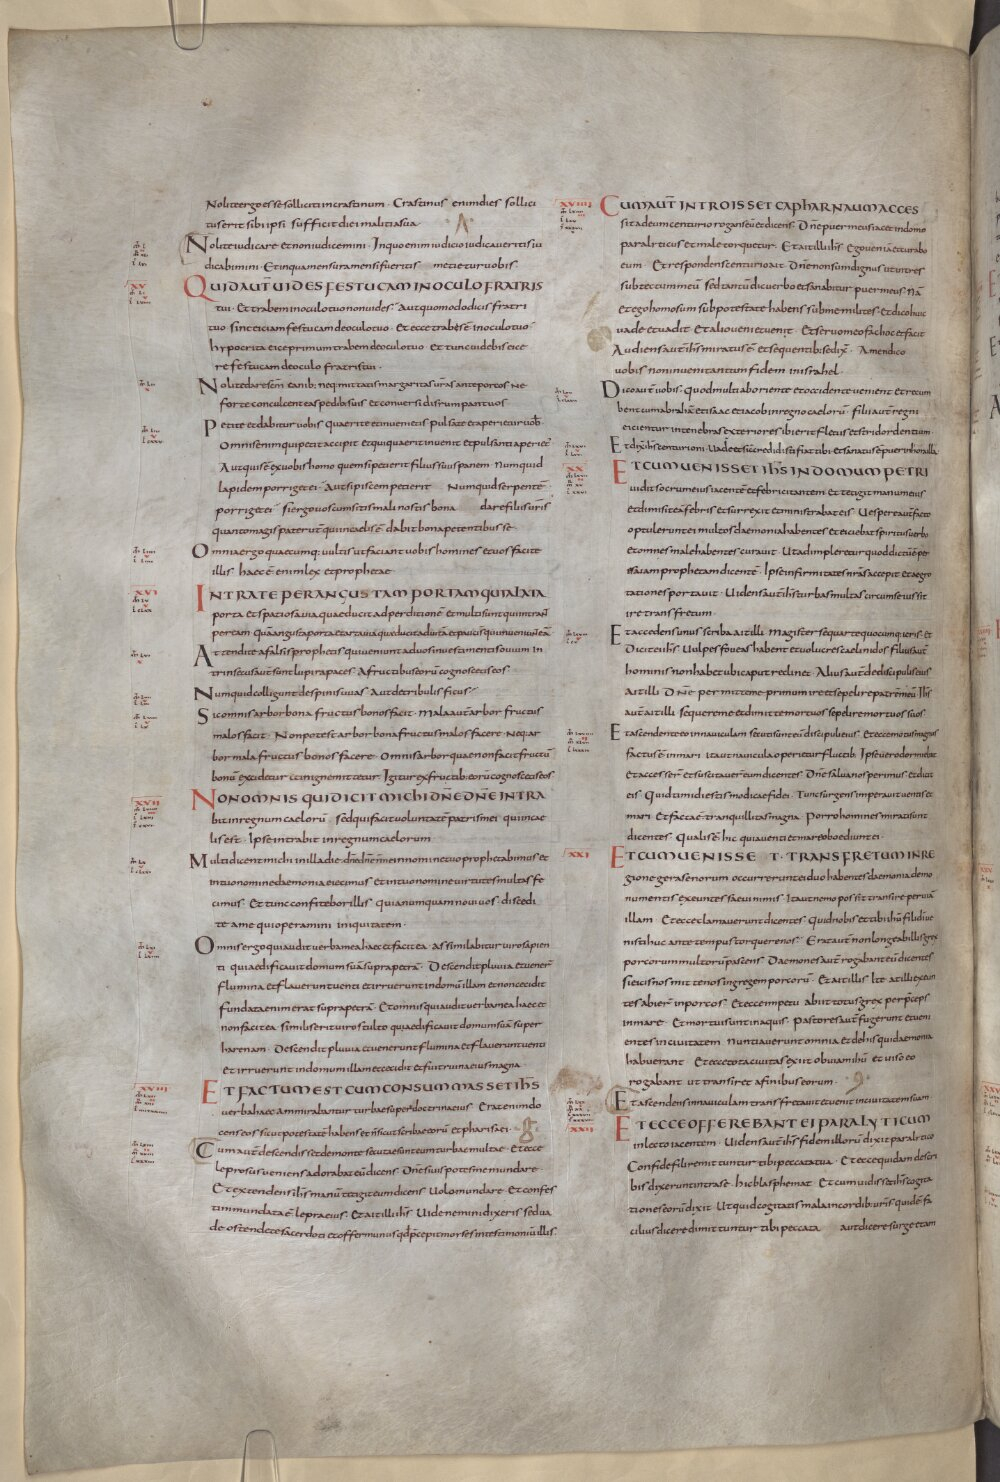 Nolite ergo esse solliciti in crastinum · Crastinus enim dies sollici
tus erit sibi ipsi sufficit diei malitia sua
Nolite iudicare et non iudicemini · In quo enim iudicio iudicaueritis iu
dicabimini · Et in qua mensura mensi fueritis metietur uobis
XV
QUID AUT̄ UIDES FESTUCAM IN OCULO FRATRIS
tui · Et trabem in oculo tuo non uides · Aut quomodo dicis fratri
tuo sine eiciam festucam de oculo tuo · Et ecce trabes ē in oculo tuo
hypocrita eice primum trabem de oculo tuo · Et tunc uidebis eice
re festucam de oculo fratris tui ·
Nolite dare scm̄ canib; neq; mittatis margaritas uras ante porcos Ne
forte conculcent eas pedibus suis et conuersi disrumpant uos
Petite et dabitur uobis Quaerite et inuenietis Pulsate et aperietur uob̄
Omnis enim qui petit accipit et qui quaerit inuenit et pulsanti aperiet̄
Aut quis ē ex uobis homo quem si petierit filius suus panem · Numquid
lapidem porriget ei · Aut si piscem petierit Numquid serpentē
porriget ei si ergo uos cum sitis mali nostis bona dare filiis uris
quanto magis pater ur̄ qui in caelis ē dabit bona petentibus se
Omnia ergo quaecumq; uultis ut faciant uobis homines et uos facite
illis haec ē enim lex et prophetae
XVI
INTRATE PER ANGUSTAM PORTAM QUIA LATA
porta et spatiosa uia quae ducit ad perditionē et multi sunt qui intrant̄
per eam Quā angusta porta et arta uia quae ducit ad uitā et pauci s̄ qui inueniunt eā
Attendite a falsis prophetis qui ueniunt ad uos in uestimentis ouium in
trinsecus aut̄ sunt lupi rapaces A fructibus eorū cognoscetis eos
Numquid colligunt de spinis uuas Aut de tribulis ficus
Sic omnis arbor bona fructus bonos facit · Mala aut̄ arbor fructus
malos facit · Non potest arbor bona fructus malos facere Neq; ar
bor mala fructus bonos facere · Omnis arbor quae non facit fructū
bonū excidetur et in igne mittetur Igitur ex fructib; eorū cognoscetis eos
XVII
NON OMNIS QUI DICIT MICHI DN̄E DN̄E INTRA
bit in regnum caelorū sed qui facit uoluntatē patris mei qui in cae
lis est · Ipse intrabit in regnum caelorum
Multi dicent michi in illa die · dn̄e dn̄e nonne in nomine tuo prophetabimus et
in tuo nomine daemonia eiecimus et in tuo nomine uirtutes multas fe
cimus · Et tunc confitebor illis quia numquam noui uos · discedi
te a me qui operamini iniquitatem ·
Omnis ergo qui audit uerba mea haec et facit ea Assimilabitur uiro sapien
ti qui aedificauit domum suā supra petrā · Descendit pluuia et uener̄
flumina et flauerunt uenti et irruerunt in domū illam et non cecidit
fundata enim erat supra petrā · Et omnis qui audit uerba mea haec et
non facit ea similis erit uiro stulto qui aedificauit domum suā super
harenam Descendit pluuia et uenerunt flumina et flauerunt uenti
et irruerunt in domum illam et cecidit et fuit ruina eius magna ·
XVIII
ET FACTUM EST CUM CONSUMMASSET IH̄S
uerba haec ammirabantur turbae super doctrina eius Erat enim do
cens eos sicut potestatē habens et n̄ sicut scribae eorū et pharisaei
Cum aut̄ descendisset de monte secutae sunt eum turbae multae · Et ecce
leprosus ueniens adorabat eū dicens Dn̄e si uis potes me mundare ·
Et extendens ih̄s manū tetigit eum dicens Uolo mundare · Et confes
tim mundata ē lepra eius Et ait illi ih̄s Uide nemini dixeris sed ua
de ostende te sacerdoti et offer munus qd̄ p̄cepit moses in testimoniū illis ·
XVIIII
CUM AUT̄ INTROISSET CAPHARNAUM ACCES
sit ad eum centurio rogans eū et dicens · Dn̄e puer meus iacet in domo
paralyticus et male torquetur · Et ait illi ih̄s Ego ueniā et curabo
eum · Et respondens centurio ait Dn̄e non sum dignus ut intres
sub tectum meū sed tantū dic uerbo et sanabitur puer meus Nā
et ego homo sum sub potestate habens sub me milites · Et dico huic
uade et uadit Et alio ueni et uenit · Et seruo meo fac hoc et facit
Audiens aut̄ ih̄s miratus ē et sequentib; se dix̄ · Amen dico
uobis non inueni tantum fidem in israhel
Dico aut̄ uobis · Quod multi ab oriente et occidente uenient et recum
bent cum abrahā et isaac et iacob in regno caelorū filii aut̄ regni
eicientur in tenebras exteriores ibi erit fletus et stridor dentium
Et dix̄ ih̄s centurioni · Uade et sicut credidisti fiat tibi · et sanatus ē puer in hora illa
XX
ET CUM UENISSET IH̄S IN DOMUM PETRI
uidit socrum eius iacentē et febricitantem Et tetigit manum eius
et dimisit eā febris et surrexit et ministrabat eis Uespere aut̄ facto
optulerunt ei multos daemonia habentes et eiciebat spiritus uerbo
et omnes male habentes curauit Ut adimpleretur quod dictū ē per
esaiam prophetam dicentē · Ipse infirmitates nras accepit et aegro
tationes portauit · Uidens aut̄ ih̄s turbas multas circum se iussit
ire trans fretum
Et accedens unus scriba ait illi Magister sequar te quocumq; ieris · Et
Dicit ei ih̄s Uulpes foueas habent et uolucres caeli nidos filius aut̄
hominis non habet ubi caput reclinet Alius aut̄ de discipulis eius
Ait illi Dn̄e permitte me primum ire et sepelire patrē meū Ih̄s
aut̄ ait illi sequere me et dimitte mortuos sepelire mortuos suos
Et ascendente eo in nauiculam secuti sunt eū discipuli eius · Et ecce motus magnus
factus ē in mari ita ut nauicula operiretur fluctib; Ipse uero dormiebat
Et accesser̄ et suscitauer̄ eum dicentes Dn̄e salua nos perimus et dicit
eis Quid timidi estis modicae fidei · Tunc surgens imperauit uentis et
mari Et facta ē tranquillitas magna Porro homines mirati sunt
dicentes Qualis ē hic quia uenti et mare oboediunt ei ·
XXI
ET CUM UENISSET TRANS FRETUM IN RE
gione gerasenorum occurrerunt ei duo habentes daemonia de mo
numentis exeuntes saeui nimis Ita ut nemo possit transire per uiā
illam · Et ecce clamauerunt dicentes Quid nobis et tibi ih̄u fili di ue
nisti huc ante tempus torquere nos Erat aut̄ non longe ab illis grex
porcorum multorū pascens Daemones aut̄ rogabant eū dicentes
si eicis nos mitte nos in gregem porcorū · Et ait illis Ite at illi exeun
tes abier̄ in porcos · Et ecce impetu abiit totus grex per p̄ceps
in mare · Et mortui sunt in aquis Pastores aut̄ fugerunt et ueni
entes in ciuitatem Nuntiauerunt omnia et de his qui daemonia
habuerant Et ecce tota ciuitas exiit obuiam ih̄u et uiso eo
rogabant ut transiret a finibus eorum ·
Et ascendens in nauiculam transfretauit et uenit in ciuitatem suam
XXII
ET ECCE OFFEREBANT EI PARALYTICUM
in lecto iacentem Uidens aut̄ ih̄s fidem illorū dixit paralytico
Confide fili remittuntur tibi peccata tua · Et ecce quidam de scri
bis dixerunt intra se · hic blasphemat Et cum uidisset ih̄s cogita
tiones eorū dixit Ut quid cogitatis mala in cordib; uris quid ē fa
cilius dicere dimittuntur tibi peccata aut dicere surge et am